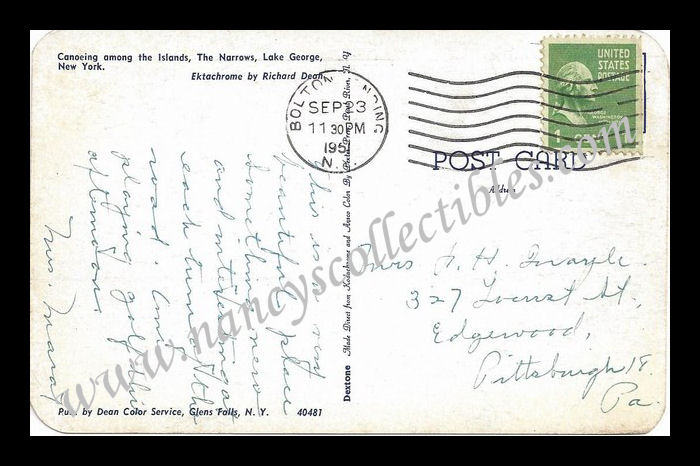 Canoeing among the Islands, The Narrows, Lake George,
New York.
Ektachrome by Richard Dean
BOLTON LANDING
SEP 23
11 30 PM
195
N.
UNITED
STATES
POSTAGE
GEORGE
WASHINGTON
POST CARD
Address
This is a
beautiful place
something new
and interesting at
each turn of the
road. Am
playing golf this
afternoon.
Mrs.
Mrs. H.
327 Locust St.,
Edgewood,
Pittsburgh 18.
Pa.
Dextone Made Direct from Kodachrome and Ansco Color By
Pub. by Dean Color Service, Glens Falls, N. Y. 40481
www.nancyscollectibles.com